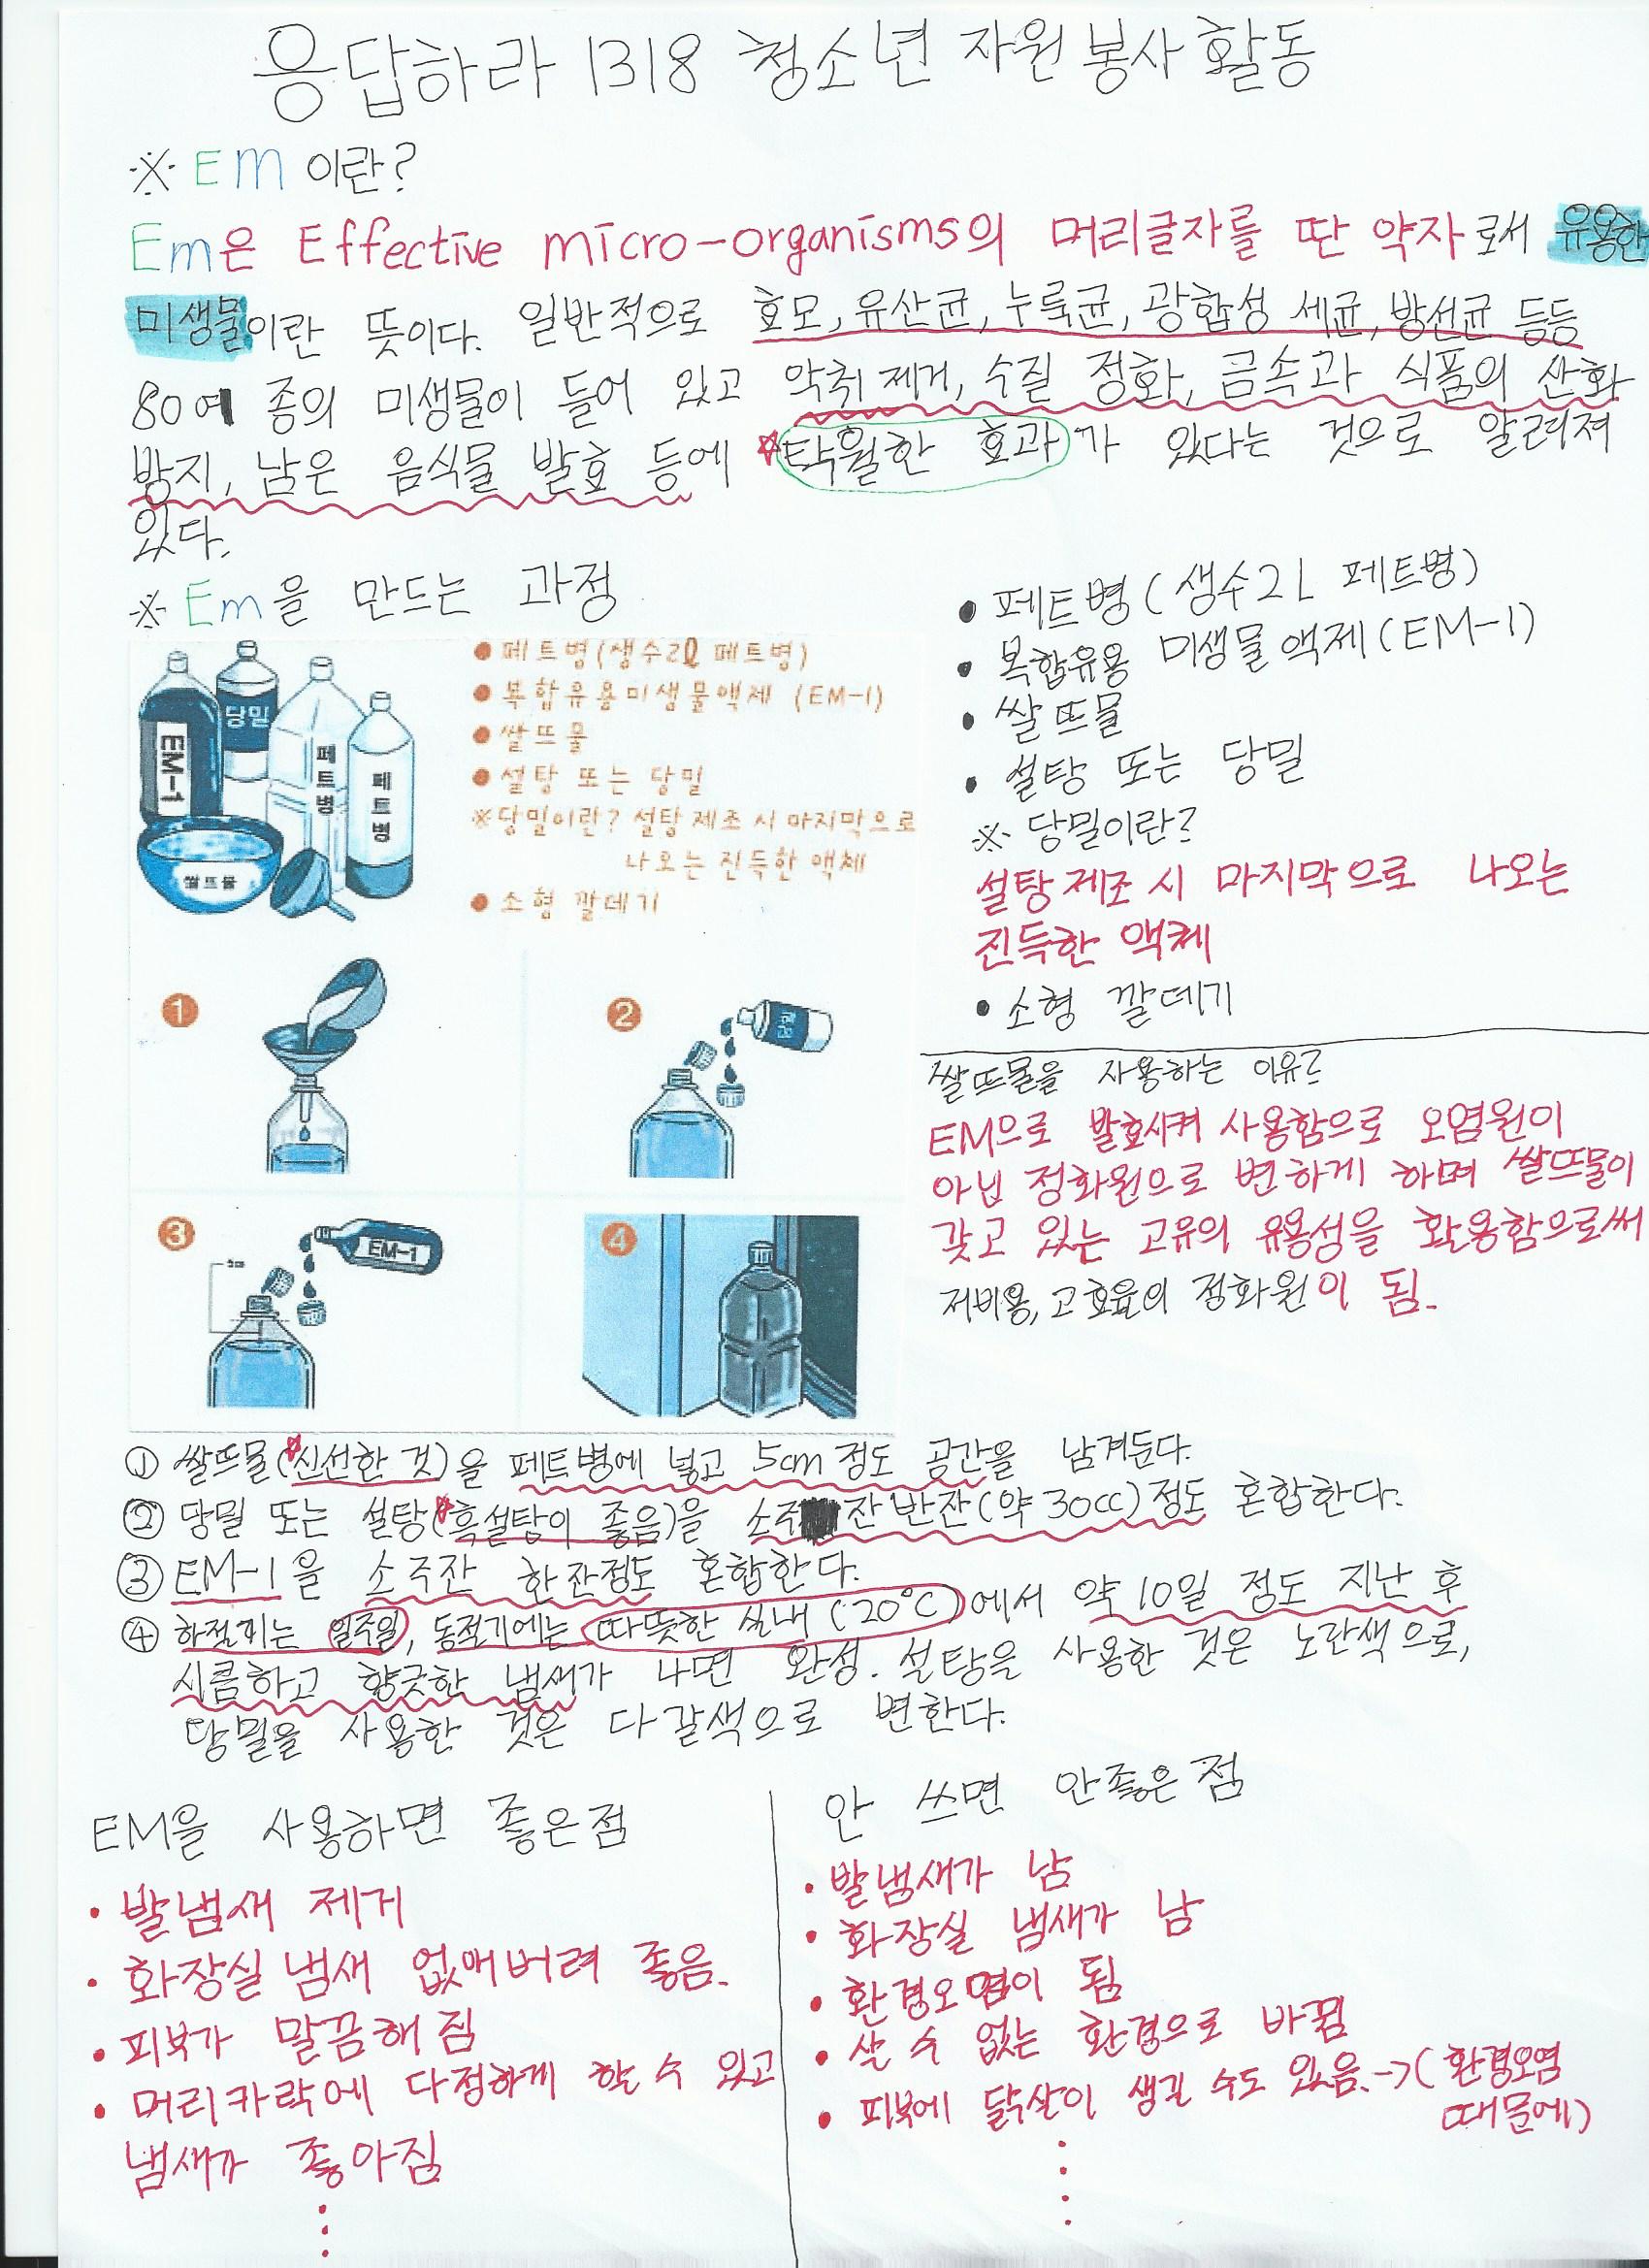 응답하라 1318 청소년 자원봉사활동
※ Em 이란?
Em은 Effective micro-organisms의 머리글자를 딴 약자로서 유용한
미생물이란 뜻이다. 일반적으로 효모, 유산균, 누룩균, 광합성 세균, 방선균 등등
80여 종의 미생물이 들어 있고 악취 제거, 수질 정화, 금속과 식품의 산화
방지, 남은 음식물 발효 등에 ☆탁월한 효과가 있다는 것으로 알려져
있다.
※ Em을 만드는 과정
EM-1
당밀
페트병
페트병
쌀뜨물
● 페트병(생수2ℓ 페트병)
● 복합유용미생물액제 (EM-1)
● 쌀뜨물
● 설탕 또는 당밀
※당밀이란? 설탕 제조 시 마지막으로
나오는 진득한 액체
● 소형 깔데기
• 페트병(생수2L 페트병)
• 복합유용 미생물 액제(EM-1)
• 쌀뜨물
• 설탕 또는 당밀
※ 당밀이란?
설탕제조 시 마지막으로 나오는
진득한 액체
• 소형 깔데기
1
2
당밀
3
5cm
EM-1
4
쌀뜨물을 사용하는 이유?
EM으로 발효시켜 사용함으로 오염원이
아닌 정화원으로 변하게 하며 쌀뜨물이
갖고 있는 고유의 유용성을 활용함으로써
저비용, 고효율의 정화원이 됨.
① 쌀뜨물(☆신선한 것)을 페트병에 넣고 5cm 정도 공간을 남겨둔다.
② 당밀 또는 설탕(☆흑설탕이 좋음)을 소주 잔 반잔(약 30cc)정도 혼합한다.
③ EM-1을 소주잔 한잔정도 혼합한다.
④ 하절기는 일주일, 동절기에는 따뜻한 실내 (20°C)에서 약 10일 정도 지난 후
시큼하고 향긋한 냄새가 나면 완성. 설탕을 사용한 것은 노란색으로,
당밀을 사용한 것은 다갈색으로 변한다.
EM을 사용하면 좋은점
• 발냄새 제거
• 화장실 냄새 없애버려 좋음.
• 피부가 말끔해 짐
• 머리카락에 다정하게 할 수 있고
냄새가 좋아짐
안 쓰면 안좋은 점
• 발냄새가 남
• 화장실 냄새가 남
• 환경오염이 됨
• 살 수 없는 환경으로 바뀜
• 피부에 닭살이 생길 수도 있음.→(환경오염
때문에)